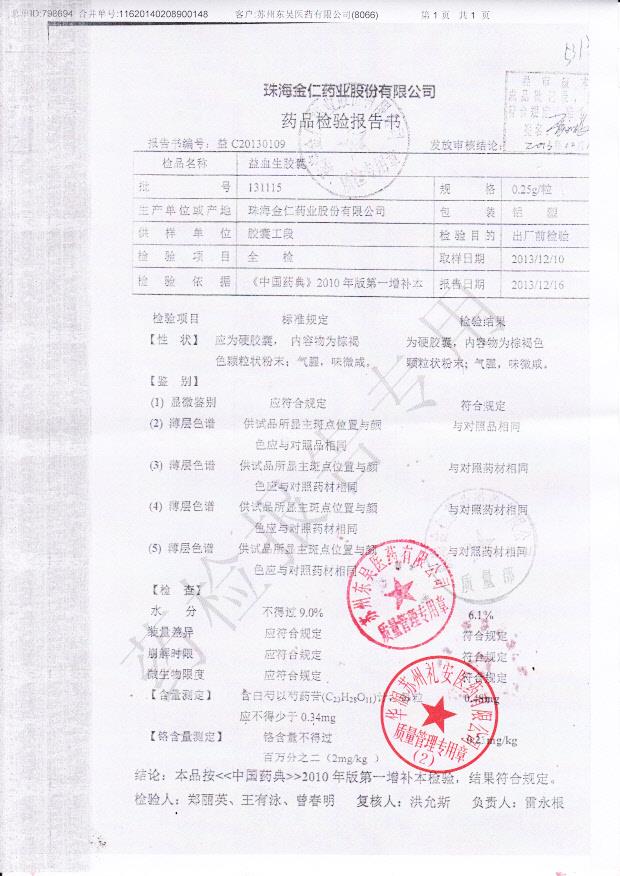 总单ID:798694 合并单号:11620140208900148 客户:苏州东吴医药有限公司(8066) 第 1 页 共 1 页
珠海金仁药业股份有限公司
药品检验报告书
报告书编号：益 C20130109 发放审核结论：
检品名称 益血生胶囊
批 号 131115 规 格 0.25g/粒
生产单位或产地 珠海金仁药业股份有限公司 包 装 铝 塑
供 样 单 位 胶囊工段 检验目的 出厂前检验
检 验 项 目 全 检 取样日期 2013/12/10
检 验 依 据 《中国药典》2010 年版第一增补本 报告日期 2013/12/16
检验项目 标准规定 检验结果
【性 状】 应为硬胶囊，内容物为棕褐 为硬胶囊，内容物为棕褐色
色颗粒状粉末；气腥，味微咸。 颗粒状粉末；气腥，味微咸。
【鉴 别】
(1) 显微鉴别 应符合规定 符合规定
(2) 薄层色谱 供试品所显主斑点位置与颜 与对照品相同
色应与对照品相同
(3) 薄层色谱 供试品所显主斑点位置与颜 与对照药材相同
色应与对照药材相同
(4) 薄层色谱 供试品所显主斑点位置与颜 与对照药材相同
色应与对照药材相同
(5) 薄层色谱 供试品所显主斑点位置与颜 与对照药材相同
色应与对照药材相同
【检 查】
水 分 不得过 9.0% 6.1%
装量差异 应符合规定 符合规定
崩解时限 应符合规定 符合规定
微生物限度 应符合规定 符合规定
【含量测定】 含白芍以芍药苷(C23H28O11)计，每粒 0.48mg
应不得少于 0.34mg
【铬含量测定】 铬含量不得过 mg/kg
百万分之二（2mg/kg ）
结论：本品按<<中国药典>>2010 年版第一增补本检验，结果符合规定。
检验人：郑丽英、王有泳、曾春明 复核人：洪允斯 负责人：雷永根
药检报告专用
苏州东吴医药有限公司
质量管理专用章
华润苏州礼安医药有限公司
质量管理专用章
（2）
质量部